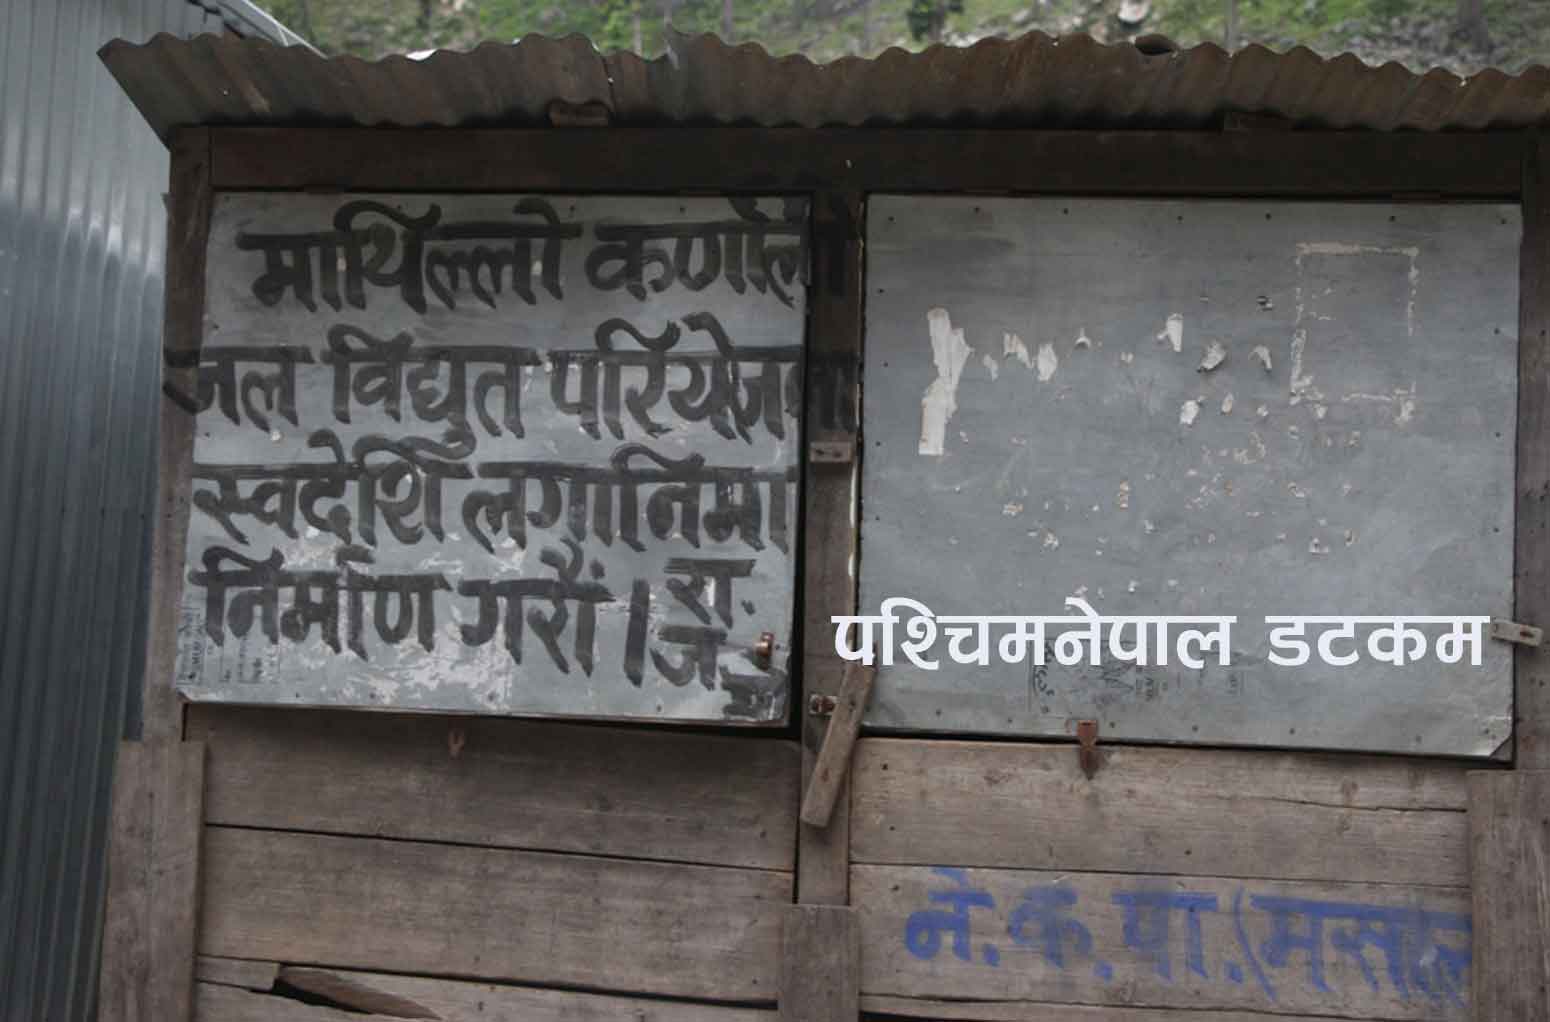 माथिल्लो कर्णाली
जल विद्युत परियोजना
स्वदेशि लगानिमा
निर्माण गरौं । रा.
ज.
पश्चिमनेपाल डटकम
ने.क.पा.(मसाल